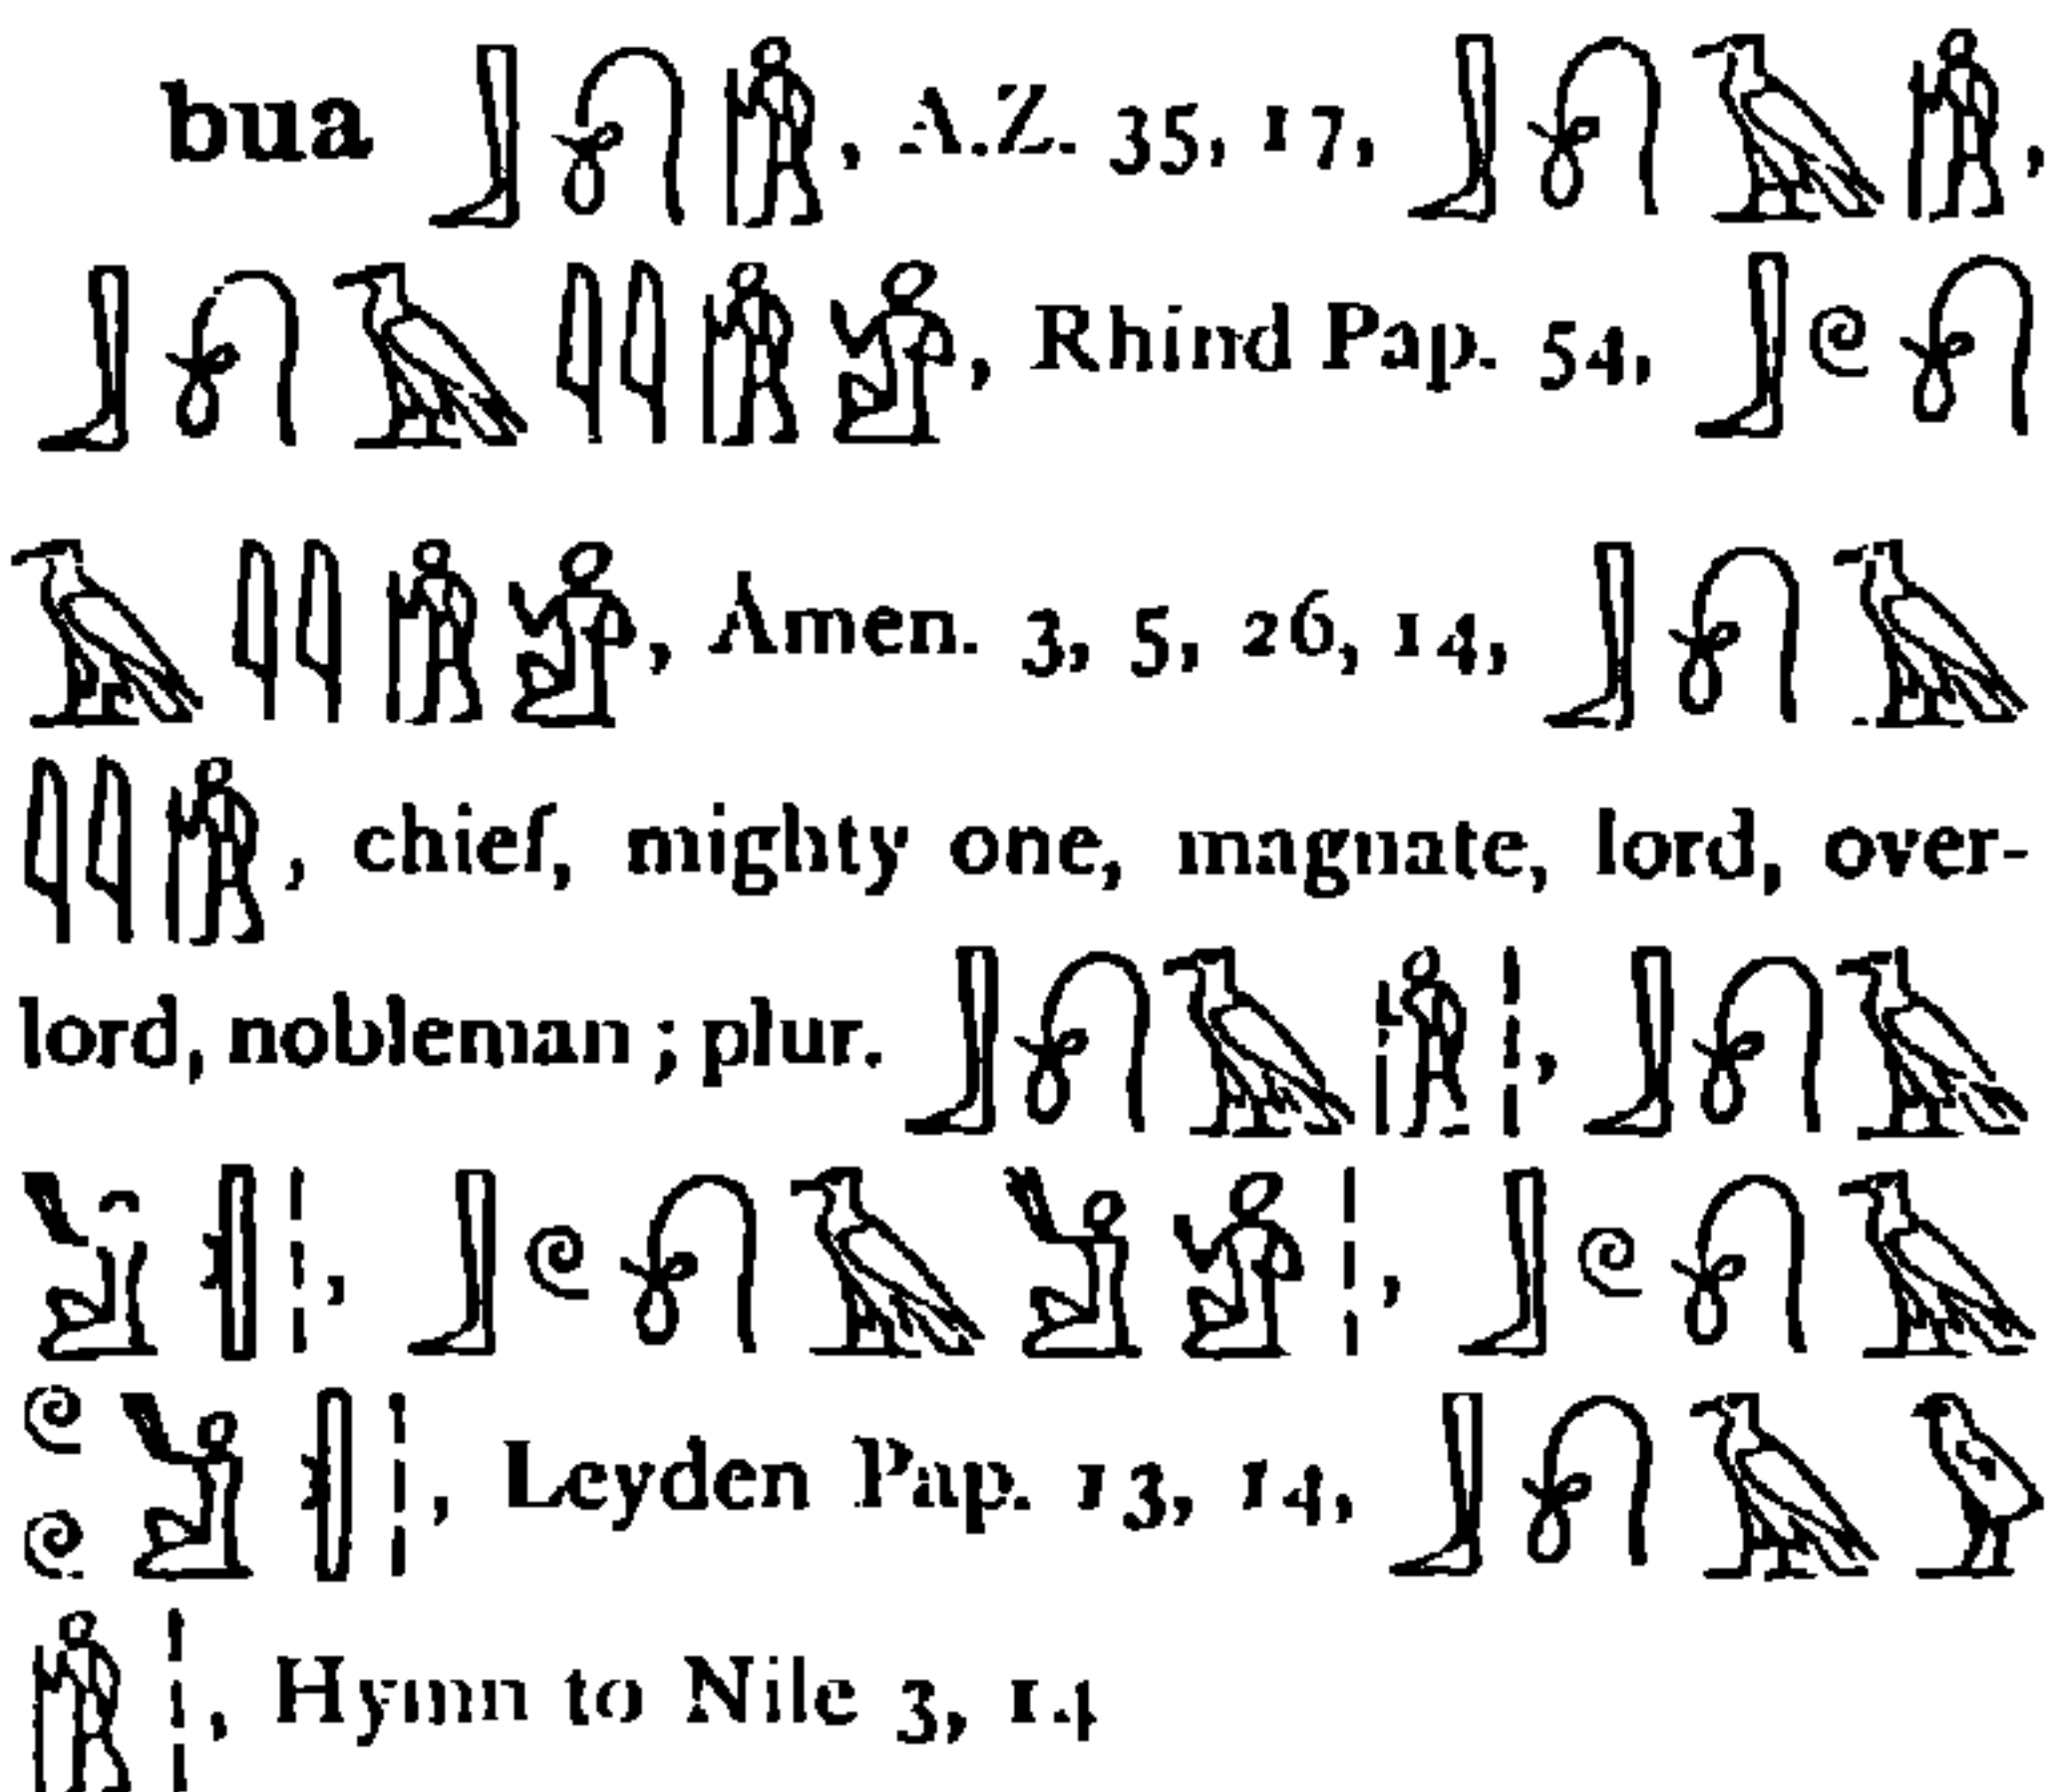 bua 𓃀𓍯𓀙, A.Z. 35, 17, 𓃀𓍯𓄿𓀙,
𓃀𓍯𓄿𓇋𓇋𓀙𓀀, Rhind Pap. 54, 𓃀𓏲𓍯
𓄿𓇋𓇋𓀙𓀀, Ȧmen. 3, 5, 26, 14, 𓃀𓍯𓄿
𓇋𓇋𓀙, chief, mighty one, magnate, lord, over-
lord, nobleman ; plur. 𓃀𓍯𓄿𓀙𓏪, 𓃀𓍯𓄿
𓏝𓏪, 𓃀𓏲𓍯𓄿𓀀𓏪, 𓃀𓏲𓍯𓄿
𓏲𓏲𓏝𓏪, Leyden Pap. 13, 14, 𓃀𓍯𓄿𓅱
𓀙𓏪, Hymn to Nile 3, 14